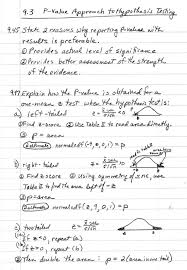 9.3 P-Value Approach to Hypothesis Testing
9.45 State 2 reasons why reporting P-value with
results is preferable.
① Provides actual level of significance
② Provides better assessment of the strength
of the evidence.
9.47 Explain how the P-value is obtained for a
one-mean z test when the hypothesis test is:
a) left-tailed
① Find z-score ② Use Table II to read area directly.
③ P = area
normalcdf(-9, z, 0, 1) = p
b) right-tailed
① Find z score ② Using symmetry of snc, use
Table II to find the area left of -z
③ p = area
normalcdf(z, 9, 0, 1) = p
c) two tailed
if z<0, repeat (a)
if z>0, repeat (b)
② Then double the area: p = 2(area in one tail)